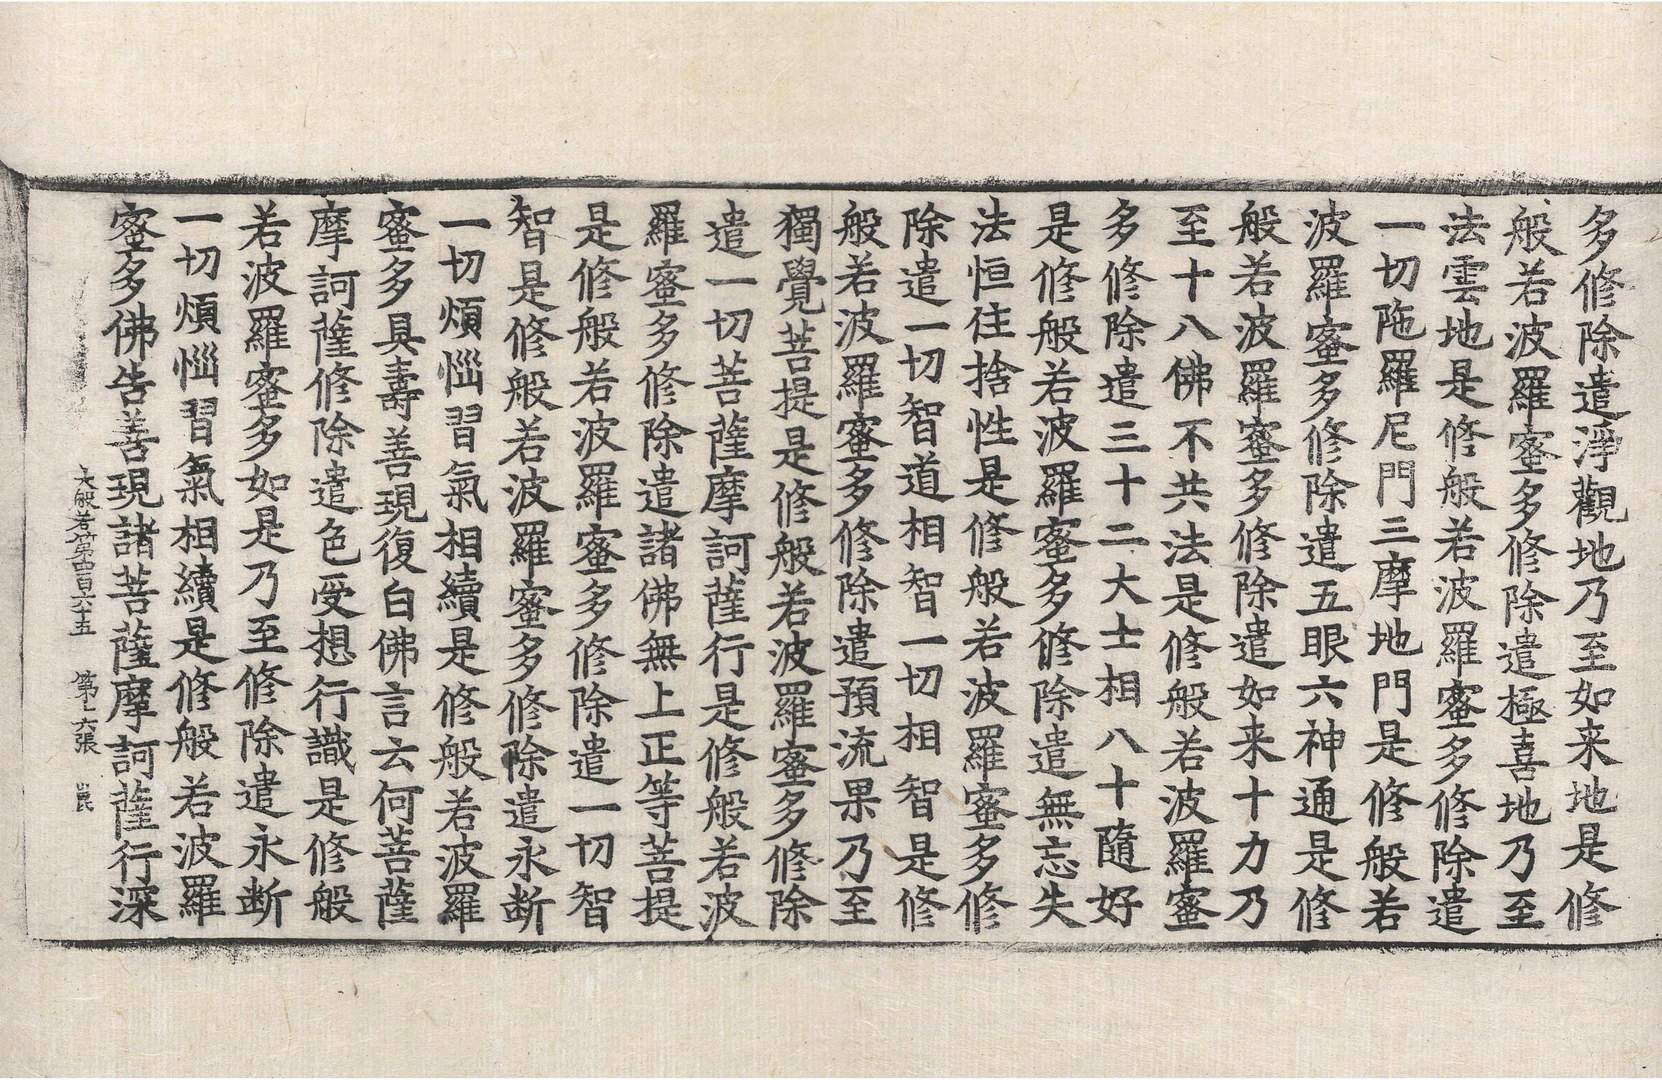 多修除遣淨觀地乃至如来地是修
般若波羅蜜多修除遣極喜地乃至
法雲地是修般若波羅蜜多修除遣
一切陁羅尼門三摩地門是修般若
波羅蜜多修除遣五眼六神通是修
般若波羅蜜多修除遣如来十力乃
至十八佛不共法是修般若波羅蜜
多修除遣三十二大士相八十隨好
是修般若波羅蜜多修除遣無忘失
法恒住捨性是修般若波羅蜜多修
除遣一切智道相智一切相智是修
般若波羅蜜多修除遣預流果乃至
獨覺菩提是修般若波羅蜜多修除
遣一切菩薩摩訶薩行是修般若波
羅蜜多修除遣諸佛無上正等菩提
是修般若波羅蜜多修除遣一切智
智是修般若波羅蜜多修除遣永断
一切煩惱習氣相續是修般若波羅
蜜多具壽善現復白佛言云何菩薩
摩訶薩修除遣色受想行識是修般
若波羅蜜多如是乃至修除遣永断
一切煩惱習氣相續是修般若波羅
蜜多佛告善現諸菩薩摩訶薩行深
大般若第四百六十五 第十六張 崑